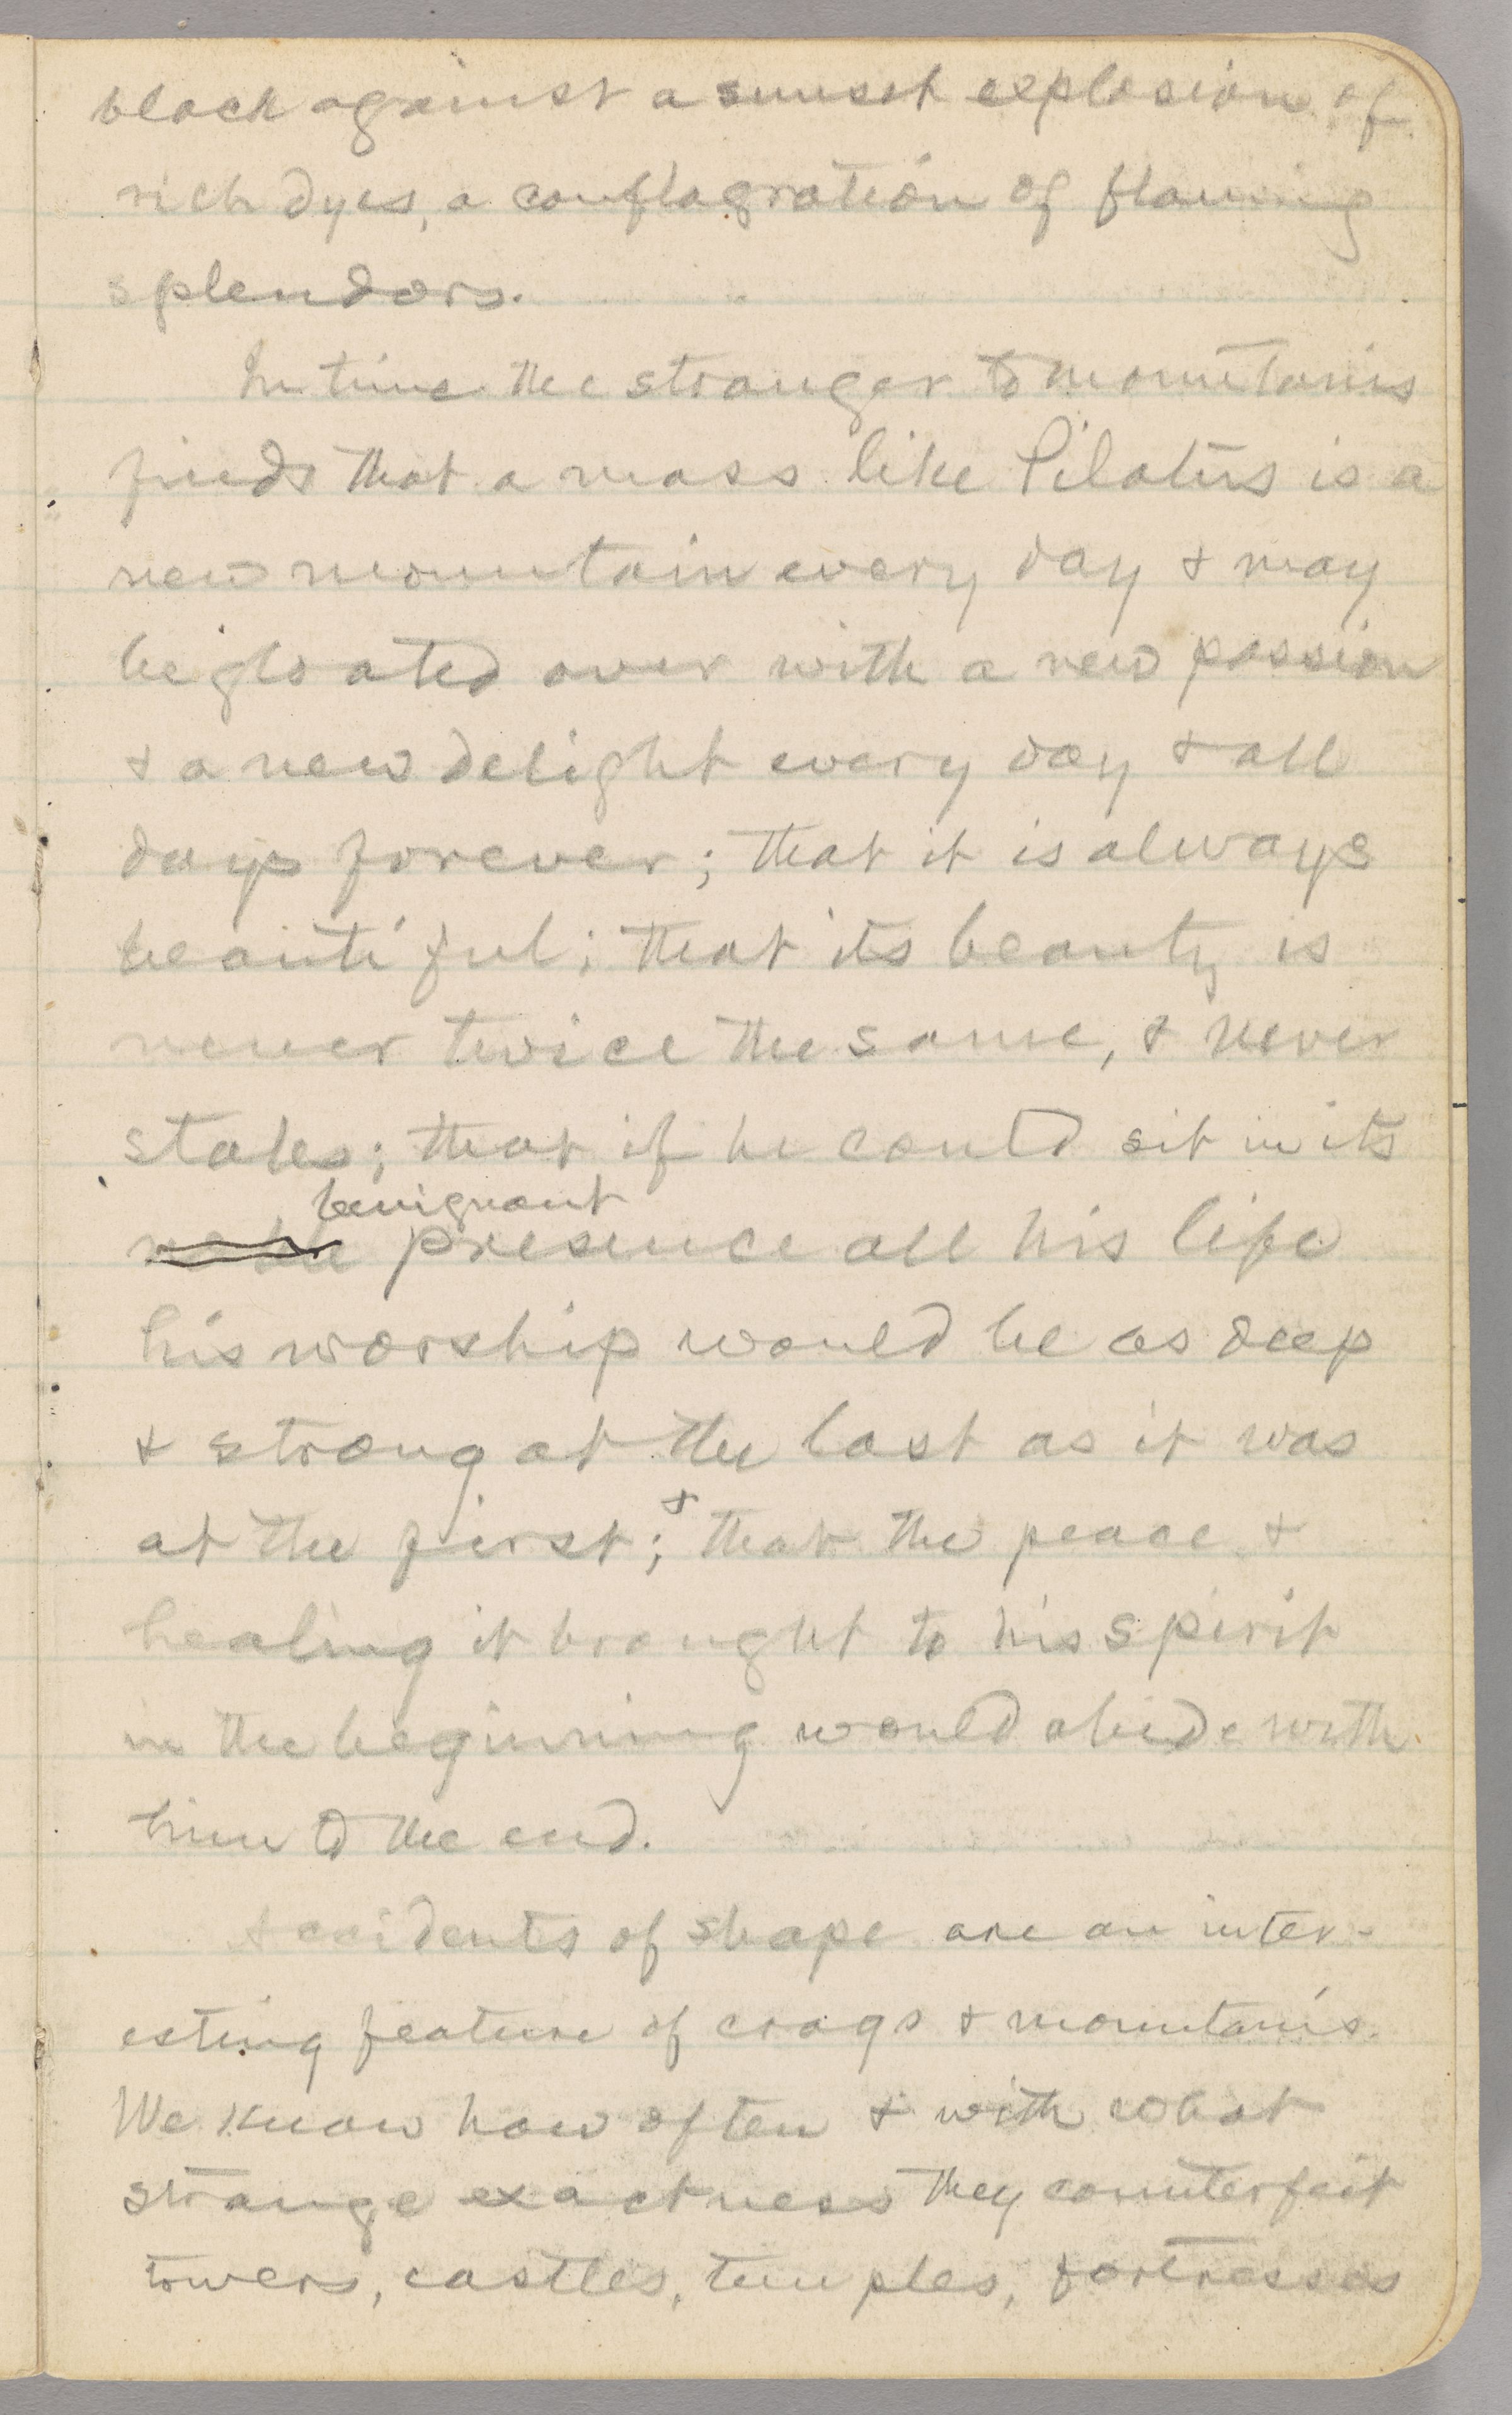 black against a sunset explosion of
rich dyes, a conflagration of flaming
splendors.
In time the stranger to mountains
finds that a mass like Pilatus is a
new mountain every day & may
be gloated over with a new passion
& a new delight every day & all
days forever; that it is always
beautiful; that its beauty is
never twice the same, & never
stales; that if he could sit in its
benignant
presence all his life
his worship would be as deep
& strong at the last as it was
at the first; & that the peace &
healing it brought to his spirit
in the beginning would abide with
him to the end.
Accidents of shape are an inter-
esting feature of crags & mountains.
We know how often & with what
strange exactness they counterfeit
towers, castles, temples, fortresses